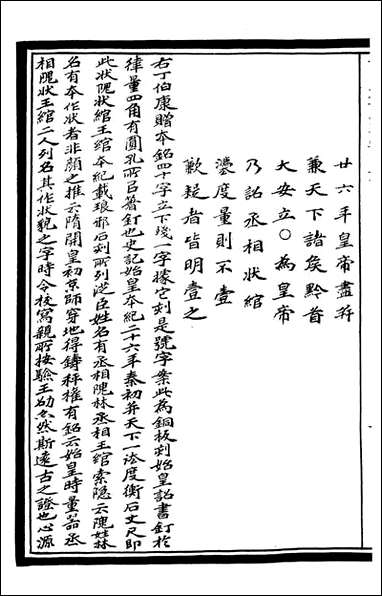 廿六年皇帝盡并
兼天下諸矦黔首
大安立○為皇帝
乃詔丞相狀綰
灋度量則不壹
歉疑者皆明壹之
右丁伯康贈本銘四十字立下殘一字據它刻是號字案此為銅板刻始皇詔書釘於
律量四角有圓孔所㠯著釘也史記始皇本紀二十六年秦初并天下一法度衡石丈尺即
此狀隗狀綰王綰本紀載琅邪后刻所列從臣姓名有丞相隗林丞相王綰索隐云隗姓林
名有本作狀者非顏之推云隋開皇初京師穿地得鑄秤權有銘云始皇時量器丞
相隗狀王綰二人列名其作狀貌之字時令校寫親所按驗王劭亦然斯遠古之證也心源